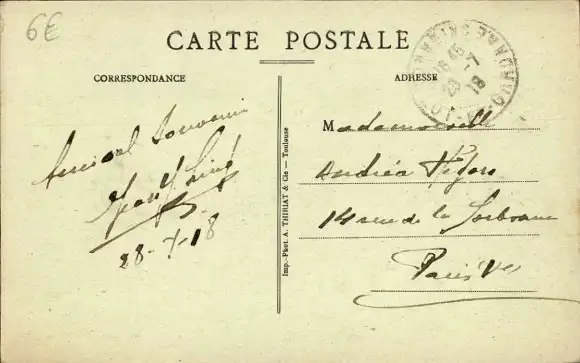 6€
CARTE POSTALE
CORRESPONDANCE
ADRESSE
Amical Souvenir
28-7-18
Imp.-Phot. A. THIRIAT & Cie — Toulouse
Mademoiselle
Andréa
14 rue de la Sorbonne
Paris Ve
16 45
28 -7
18